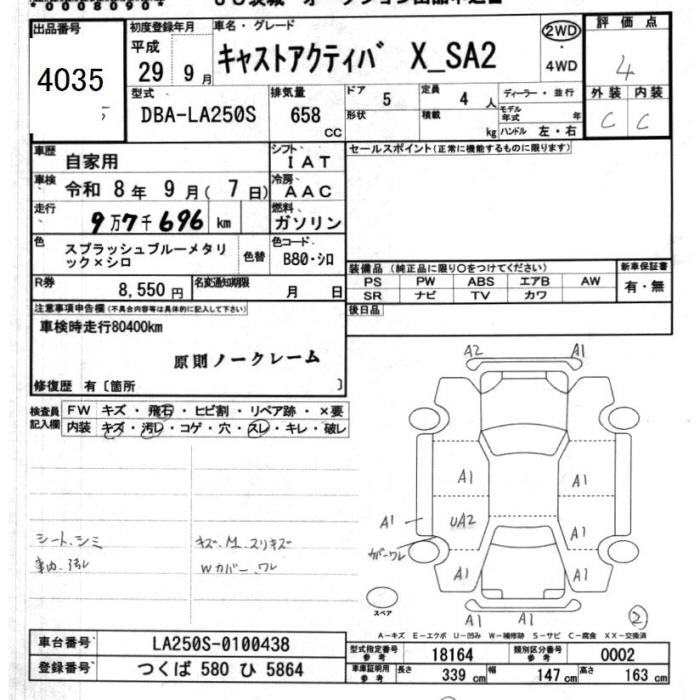 出品番号
4035
初度登録年月
平成
29 9月
車名・グレード
キャストアクティバ X_SA2
2WD
4WD
評価点
4
外装 内装
C C
型式
DBA-LA250S
排気量
658
CC
ドア
5
定員
4 人
形状
積載
kg
ディーラー・並行
モデル年式 年
ハンドル 左・右
車歴
自家用
シフト
IAT
セールスポイント(正常に機能するものに限ります)
車検
令和 8年 9月( 7日)
冷房
AAC
走行
9万7千696 km
燃料
ガソリン
色
スプラッシュブルーメタリ
ック×シロ
色替
色コード
B80・シロ
装備品 (純正品に限り○をつけてください)
PS PW ABS エアB AW
SR ナビ TV カワ
新車保証書
有・無
R券
8,550円
名変通知期限
月 日
後日品
注意事項申告欄(不具合内容等は具体的に記入して下さい)
車検時走行80400km
原則ノークレーム
修復歴 有〔箇所 〕
検査員
記入欄
FW キズ・飛石・ヒビ割・リペア跡・×要
内装 キズ・汚レ・コゲ・穴・スレ・キレ・破レ
シート、シミ
車内、汚レ
キズ、M、スリキズ
Wカバー、ワレ
A2 A1
A1 A1
A1 UA2 A1
カバーワレ
A1 A1
スペア
A1 A1
②
A-キズ E-エクボ U-凹み W-補修跡 S-サビ C-腐食 XX-交換済
車台番号
LA250S-0100438
登録番号
つくば 580 ひ 5864
型式指定番号
参考
18164
類別区分番号
参考
0002
車庫証明用
参考
長さ
339 cm
幅
147 cm
高さ
163 cm